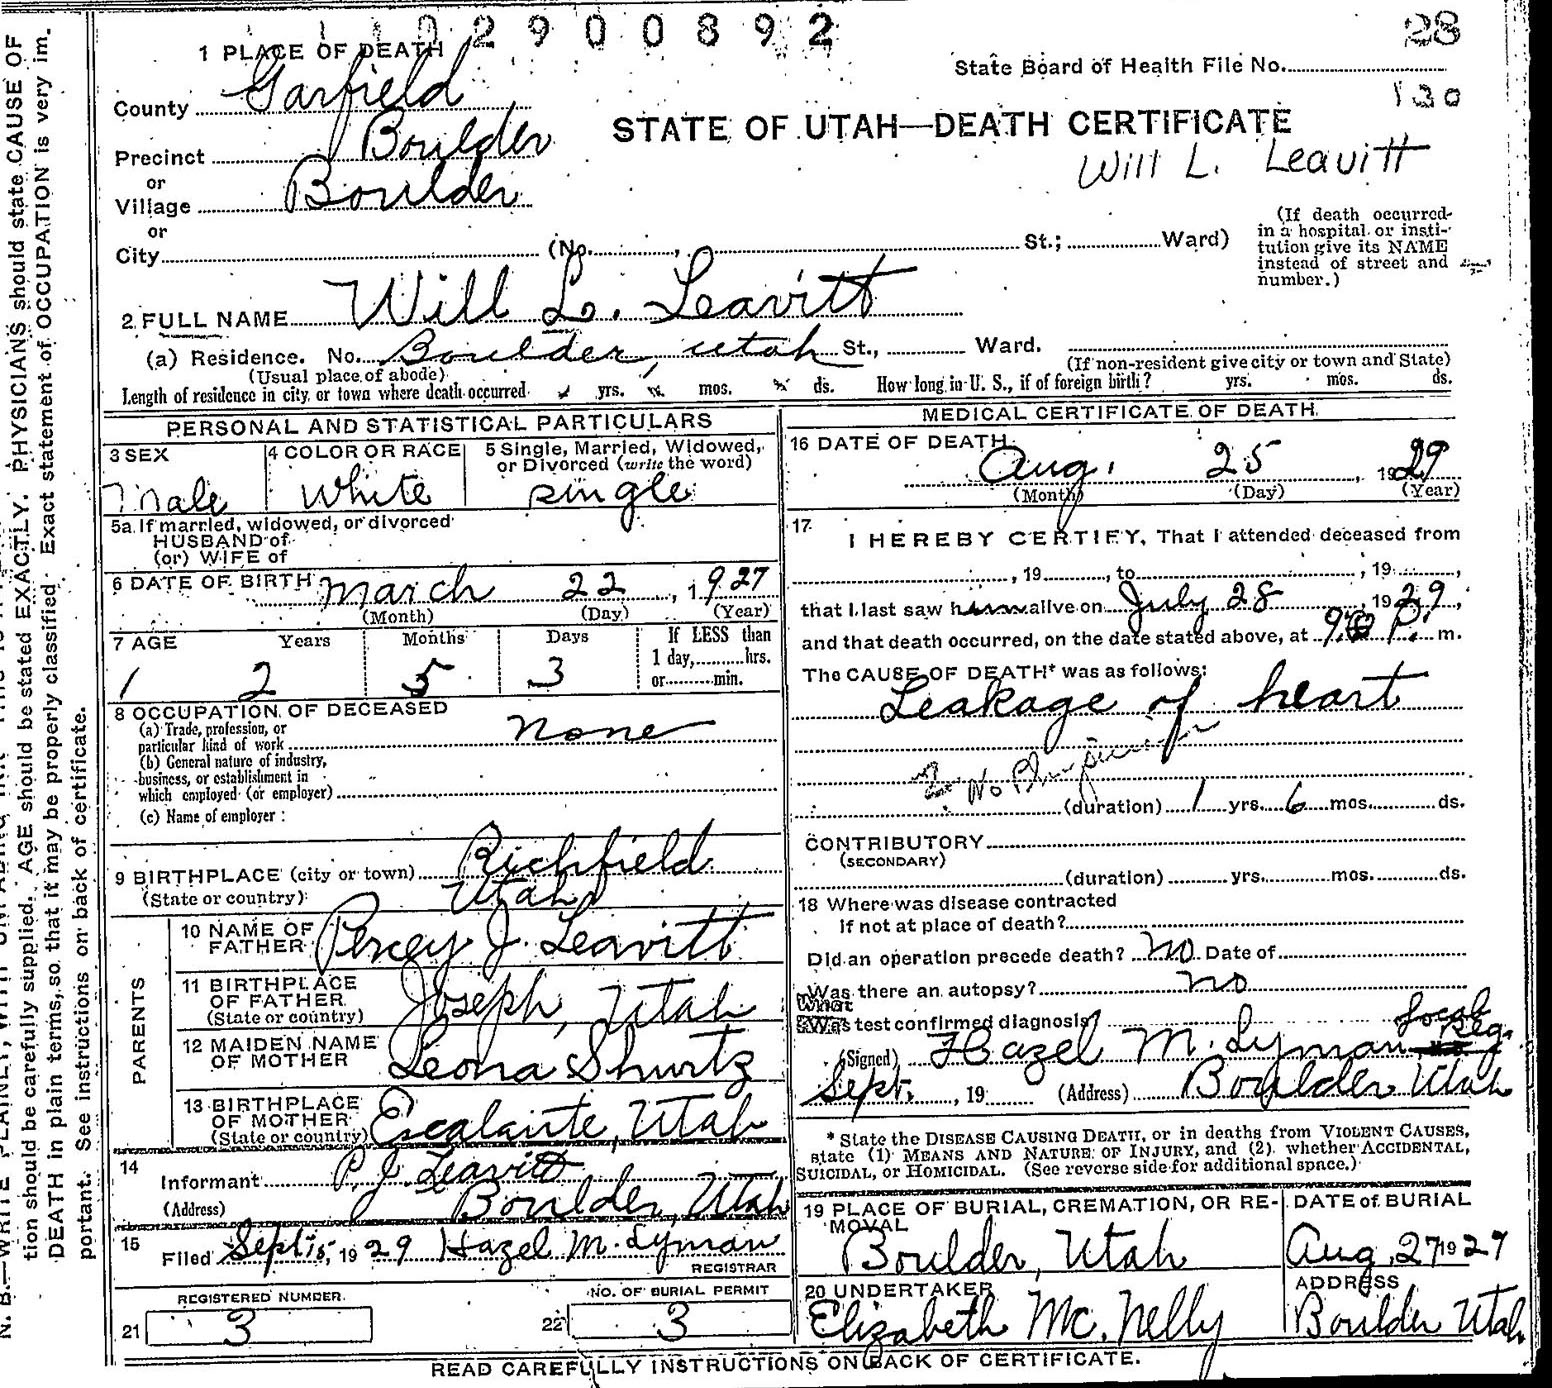 2900892
28
1 PLACE OF DEATH
State Board of Health File No.
130
County Garfield
STATE OF UTAH—DEATH CERTIFICATE
Precinct Boulder
Will L. Leavitt
or
Village Boulder
or
City (No. , St.; Ward)
(If death occurred
in a hospital or insti-
tution give its NAME
instead of street and
number.)
2. FULL NAME Will L. Leavitt
(a) Residence. No. Boulder, Utah St., Ward.
(Usual place of abode) (If non-resident give city or town and State)
Length of residence in city or town where death occurred yrs. mos. ds. How long in U. S., if of foreign birth? yrs. mos. ds.
PERSONAL AND STATISTICAL PARTICULARS
3 SEX 4 COLOR OR RACE 5 Single, Married, Widowed,
or Divorced (write the word)
Male White single
5a If married, widowed, or divorced
HUSBAND of
(or) WIFE of
6 DATE OF BIRTH March 22, 1927
(Month) (Day) (Year)
7 AGE Years Months Days If LESS than
1 day, hrs.
or min.
2 5 3
8 OCCUPATION OF DECEASED
(a) Trade, profession, or
particular kind of work None
(b) General nature of industry,
business, or establishment in
which employed (or employer)
(c) Name of employer :
9 BIRTHPLACE (city or town) Richfield
(State or country) Utah
PARENTS
10 NAME OF
FATHER Percey J. Leavitt
11 BIRTHPLACE
OF FATHER
(State or country) Joseph, Utah
12 MAIDEN NAME
OF MOTHER Leona Shurtz
13 BIRTHPLACE
OF MOTHER
(State or country) Escalante, Utah
14
Informant P. J. Leavitt
(Address) Boulder, Utah
15
Filed Sept 15, 1929 Hazel M. Lyman
REGISTRAR
REGISTERED NUMBER. NO. OF BURIAL PERMIT
21 3 22 3
MEDICAL CERTIFICATE OF DEATH
16 DATE OF DEATH
Aug. 25, 1929
(Month) (Day) (Year)
17
I HEREBY CERTIFY, That I attended deceased from
, 19 , to , 19 ,
that I last saw him alive on July 28, 1929,
and that death occurred, on the date stated above, at P. m.
The CAUSE OF DEATH* was as follows:
Leakage of heart
No Physician
(duration) 1 yrs. 6 mos. ds.
CONTRIBUTORY
(SECONDARY)
(duration) yrs. mos. ds.
18 Where was disease contracted
if not at place of death?
Did an operation precede death? No. Date of
Was there an autopsy? no
What test confirmed diagnosis
(Signed) Hazel M. Lyman Local Reg.
Sept. , 19 (Address) Boulder Utah
* State the DISEASE CAUSING DEATH, or in deaths from VIOLENT CAUSES,
state (1) MEANS AND NATURE OF INJURY, and (2) whether ACCIDENTAL,
SUICIDAL, or HOMICIDAL. (See reverse side for additional space.)
19 PLACE OF BURIAL, CREMATION, OR RE-
MOVAL
Boulder, Utah
DATE of BURIAL
Aug, 27 1929
20 UNDERTAKER
Elizabeth Mc. Nelly
ADDRESS
Boulder Utah
READ CAREFULLY INSTRUCTIONS ON BACK OF CERTIFICATE.
tion should be carefully supplied. AGE should be stated EXACTLY. PHYSICIANS should state CAUSE OF
DEATH in plain terms, so that it may be properly classified. Exact statement of OCCUPATION is very im.
portant. See instructions on back of certificate.